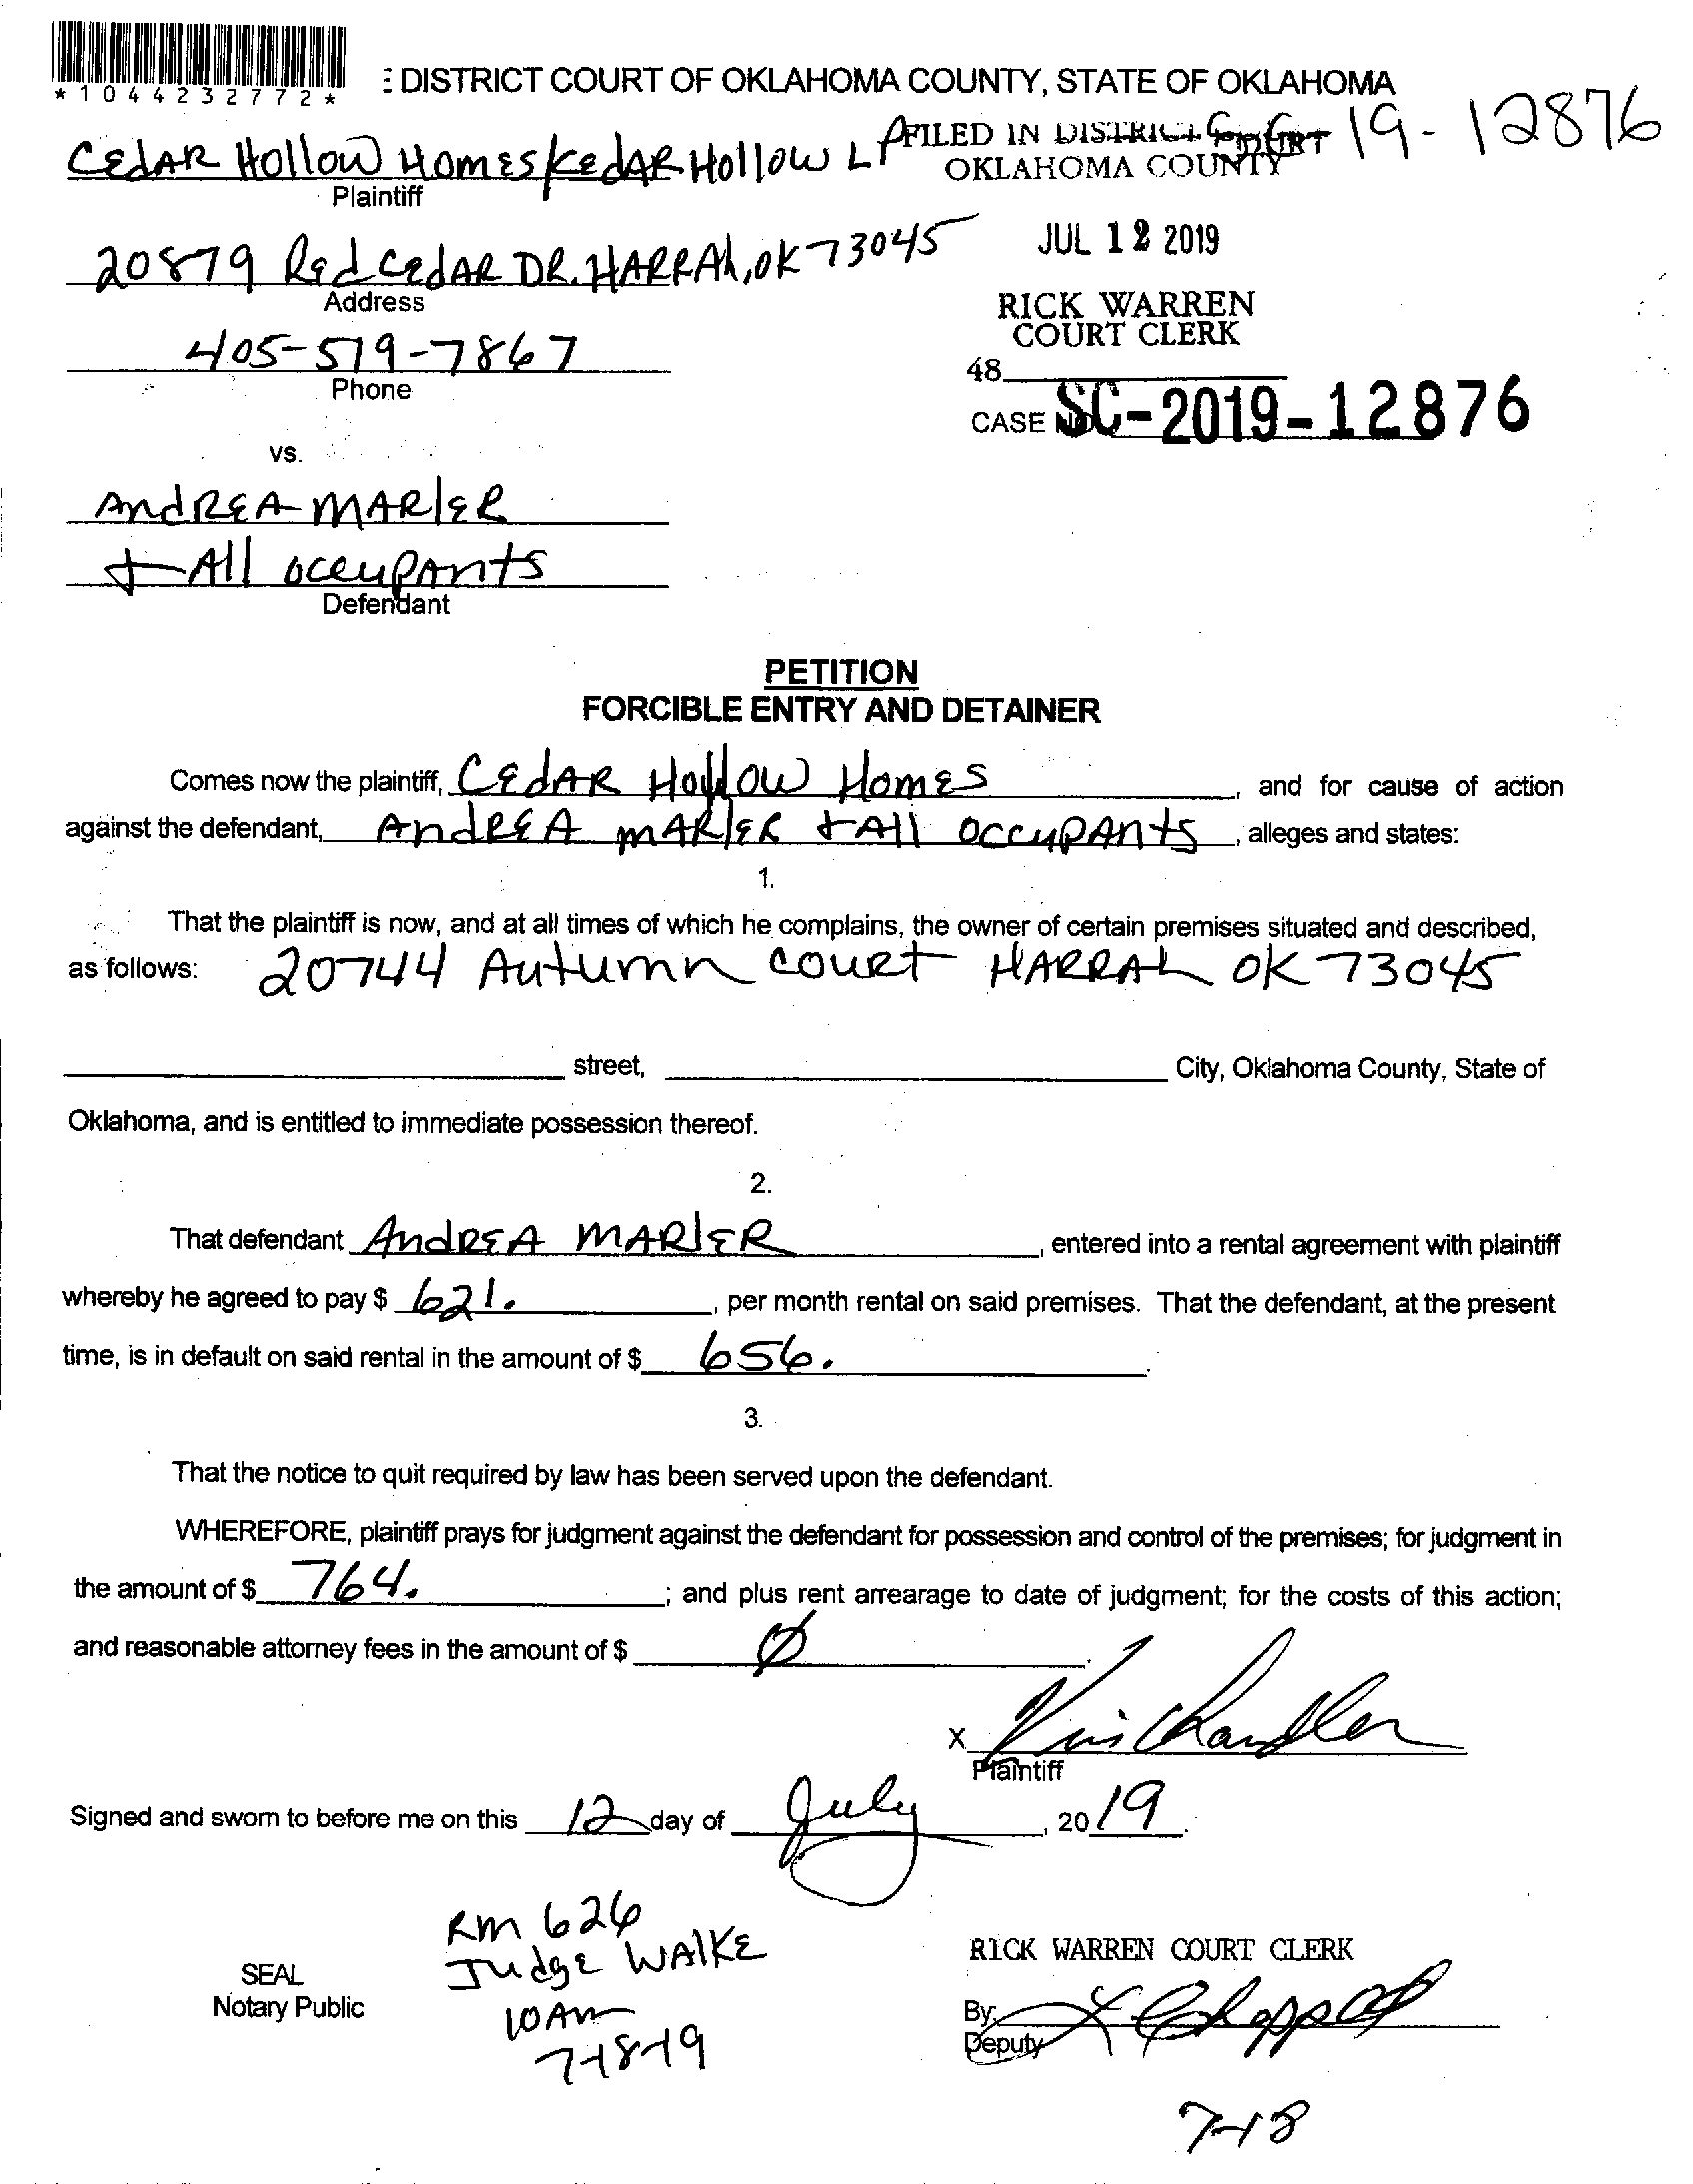 *1044232772*
E DISTRICT COURT OF OKLAHOMA COUNTY, STATE OF OKLAHOMA
FILED IN DISTRICT COURT 19-12876
CEdAR Hollow HomEs/CEdAR Hollow LP
OKLAHOMA COUNTY
Plaintiff
JUL 12 2019
20879 Red CEdAR DR. HARRAh, OK 73045
Address
RICK WARREN
COURT CLERK
405-519-7867
48
Phone
CASE NO. SC-2019-12876
vs.
AndREA MARlER
+ All occupAnts
Defendant
PETITION
FORCIBLE ENTRY AND DETAINER
Comes now the plaintiff, CEdAR Hollow HomEs, and for cause of action
against the defendant, AndREA mARlER + All occupAnts, alleges and states:
1.
That the plaintiff is now, and at all times of which he complains, the owner of certain premises situated and described,
as follows: 20744 Autumn couRt HARRAh OK 73045
street, City, Oklahoma County, State of
Oklahoma, and is entitled to immediate possession thereof.
2.
That defendant AndREA MARlER, entered into a rental agreement with plaintiff
whereby he agreed to pay $ 621., per month rental on said premises. That the defendant, at the present
time, is in default on said rental in the amount of $ 656..
3.
That the notice to quit required by law has been served upon the defendant.
WHEREFORE, plaintiff prays for judgment against the defendant for possession and control of the premises; for judgment in
the amount of $ 764.; and plus rent arrearage to date of judgment; for the costs of this action;
and reasonable attorney fees in the amount of $ Ø.
X Kris Chandler
Plaintiff
Signed and sworn to before me on this 12 day of July, 2019.
Rm 626
Judge WAlKE
RICK WARREN COURT CLERK
SEAL
Notary Public
10 Am
By:
Deputy
7-18-19
7-18